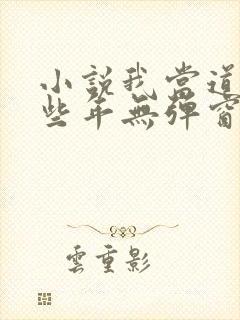 小說我當道
些年無彈窗
雲重影